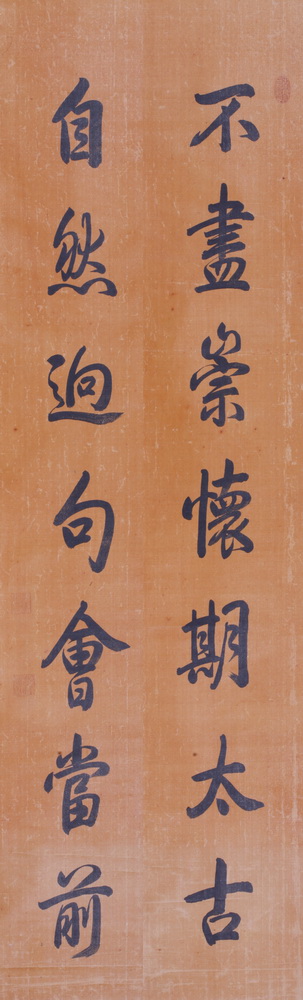 不盡崇懷期太古
自然迥句會當前